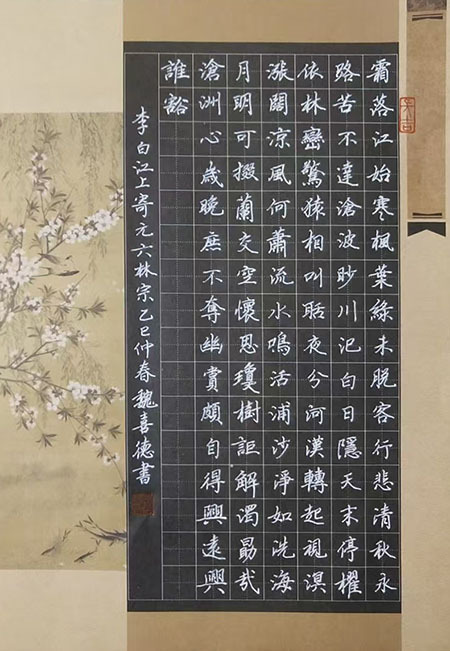 霜落江始寒楓葉綠未脫客行悲清秋永
路苦不達滄波眇川汜白日隱天末停櫂
依林巒驚猿相叫聒夜分河漢轉起視溟
漲闊涼風何蕭流水鳴活浦沙淨如洗海
月明可掇蘭交空懷思瓊樹詎解渴勗哉
滄洲心歲晚庶不奪幽賞頗自得興遠興
誰豁
李白江上寄元六林宗乙巳仲春魏喜德書